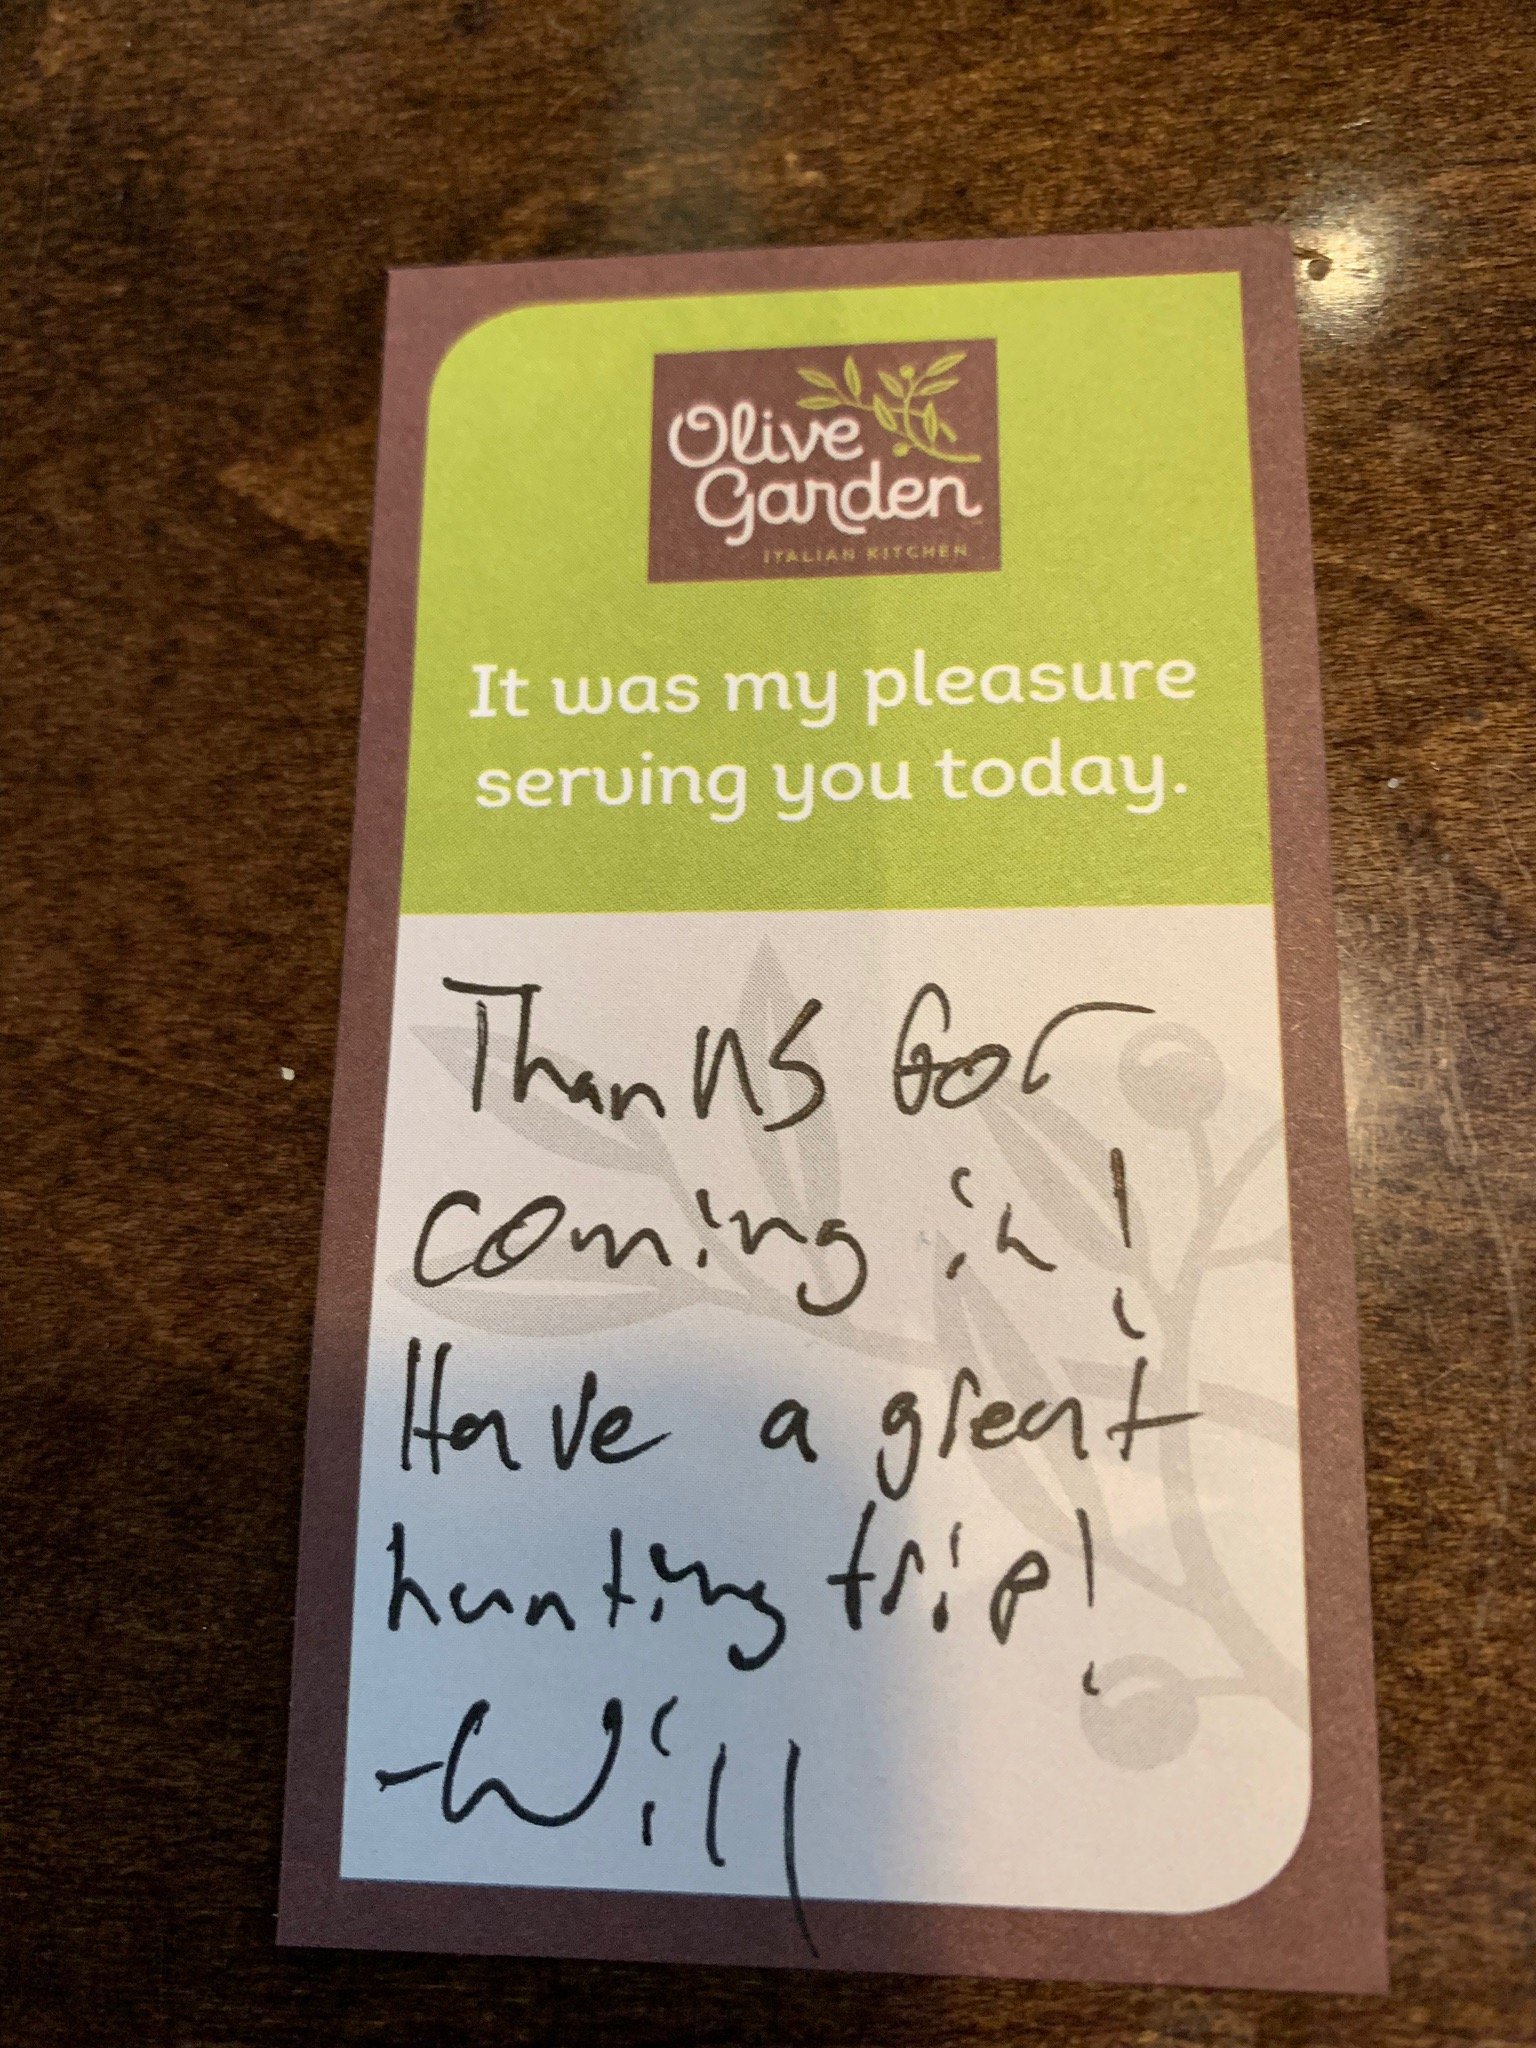 Olive
Garden
ITALIAN KITCHEN
It was my pleasure
serving you today.
Thanks for
coming in!
Have a great
hunting trip!
-Will